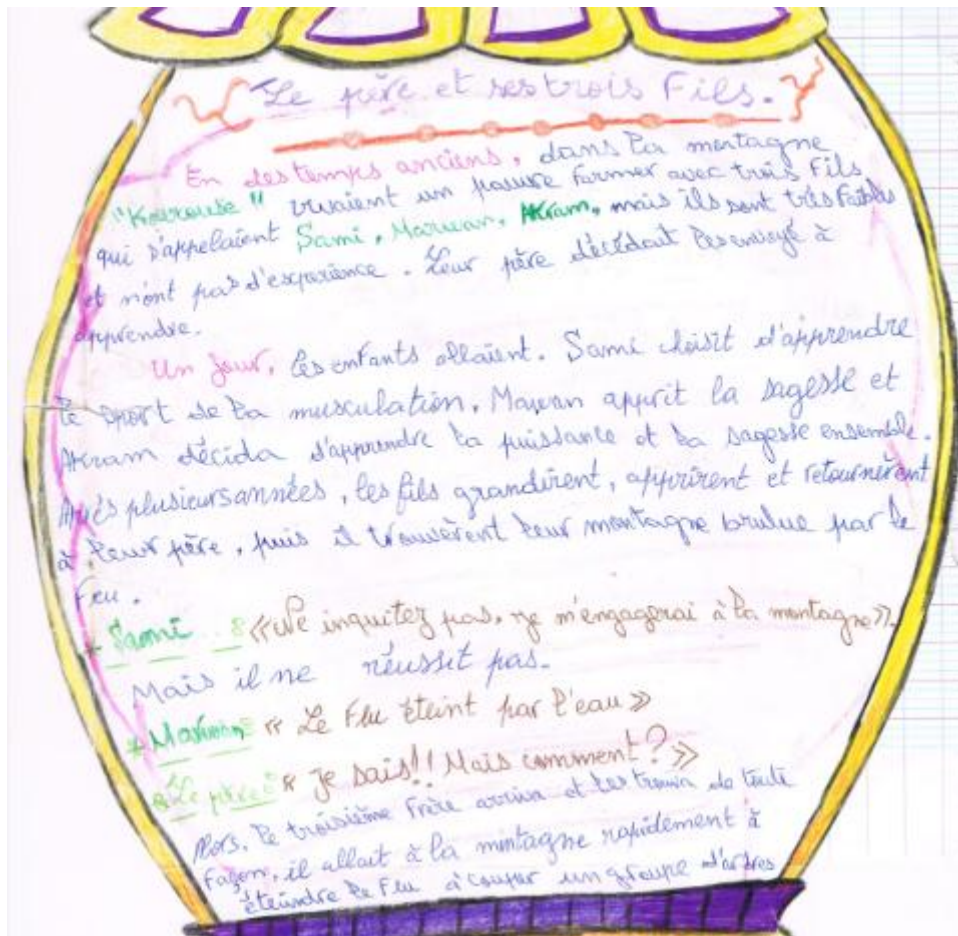 Le père et ses trois Fils.
En des temps anciens, dans la montagne
"Kairouse" vivaient un pauvre farmer avec trois Fils
qui s'appelaient Sami, Marwan, Akram, mais ils sont très faibles
et n'ont pas d'experience. Leur père décédait les envoyé à
apprendre.
Un jour, les enfants allaient. Sami choisit d'apprendre
le sport de la musculation, Marwan apprit la sagesse et
Akram décida d'apprendre la puissance et la sagesse ensemble.
Aprés plusieurs années, les fils grandirent, apprirent et retournèrent
à leur père, puis il trouvèrent leur montagne brulue par le
feu.
* Sami : «Ne inquitez pas, je m'engagerai à la montagne».
Mais il ne réussit pas.
* Marwan : « Le Feu éteint par l'eau »
* Le père : « je sais!! Mais comment? »
Alors, le troisième Frère arriva et les trouva de toute
façon, il allait à la montagne rapidement à
éteindre le Feu à couper un groupe d'arbres